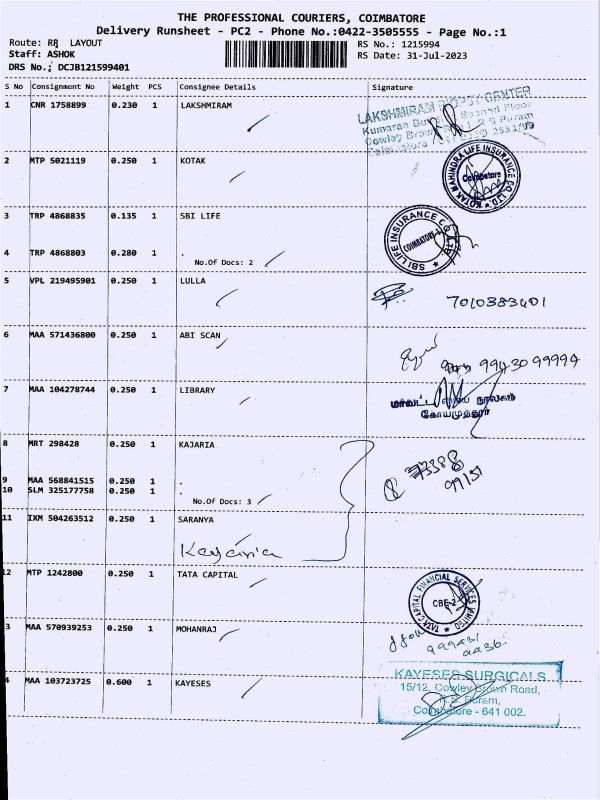 THE PROFESSIONAL COURIERS, COIMBATORE
Delivery Runsheet - PC2 - Phone No.:0422-3505555 - Page No.:1
Route: RR LAYOUT
RS No.: 1215994
Staff: ASHOK
RS Date: 31-Jul-2023
DRS No.: DCJB121599401
S No Consignment No Weight PCS Consignee Details Signature
1 CNR 1758899 0.230 1 LAKSHMIRAM
2 MTP 5021119 0.250 1 KOTAK
KOTAK MAHINDRA LIFE INSURANCE CO. LTD.
Coimbatore
3 TRP 4868835 0.135 1 SBI LIFE
SBI LIFE INSURANCE CO. LTD
4 TRP 4868803 0.280 1 .
No.Of Docs: 2
5 VPL 219495901 0.250 1 LULLA
7010383401
6 MAA 571436800 0.250 1 ABI SCAN
99430 99994
7 MAA 104278744 0.250 1 LIBRARY
நூலகம்
கோயமுத்தூர்
8 MRT 298428 0.250 1 KAJARIA
9 MAA 568841515 0.250 1 .
10 SLM 325177758 0.250 1 .
No.Of Docs: 3
11 IXM 504263512 0.250 1 SARANYA
12 MTP 1242800 0.250 1 TATA CAPITAL
TATA CAPITAL FINANCIAL SERVICES LIMITED
CBE-2
3 MAA 570939253 0.250 1 MOHANRAJ
4 MAA 103723725 0.600 1 KAYESES
KAYESES SURGICALS
15/12, Cowley Brown Road,
R.S. Puram,
Coimbatore - 641 002.